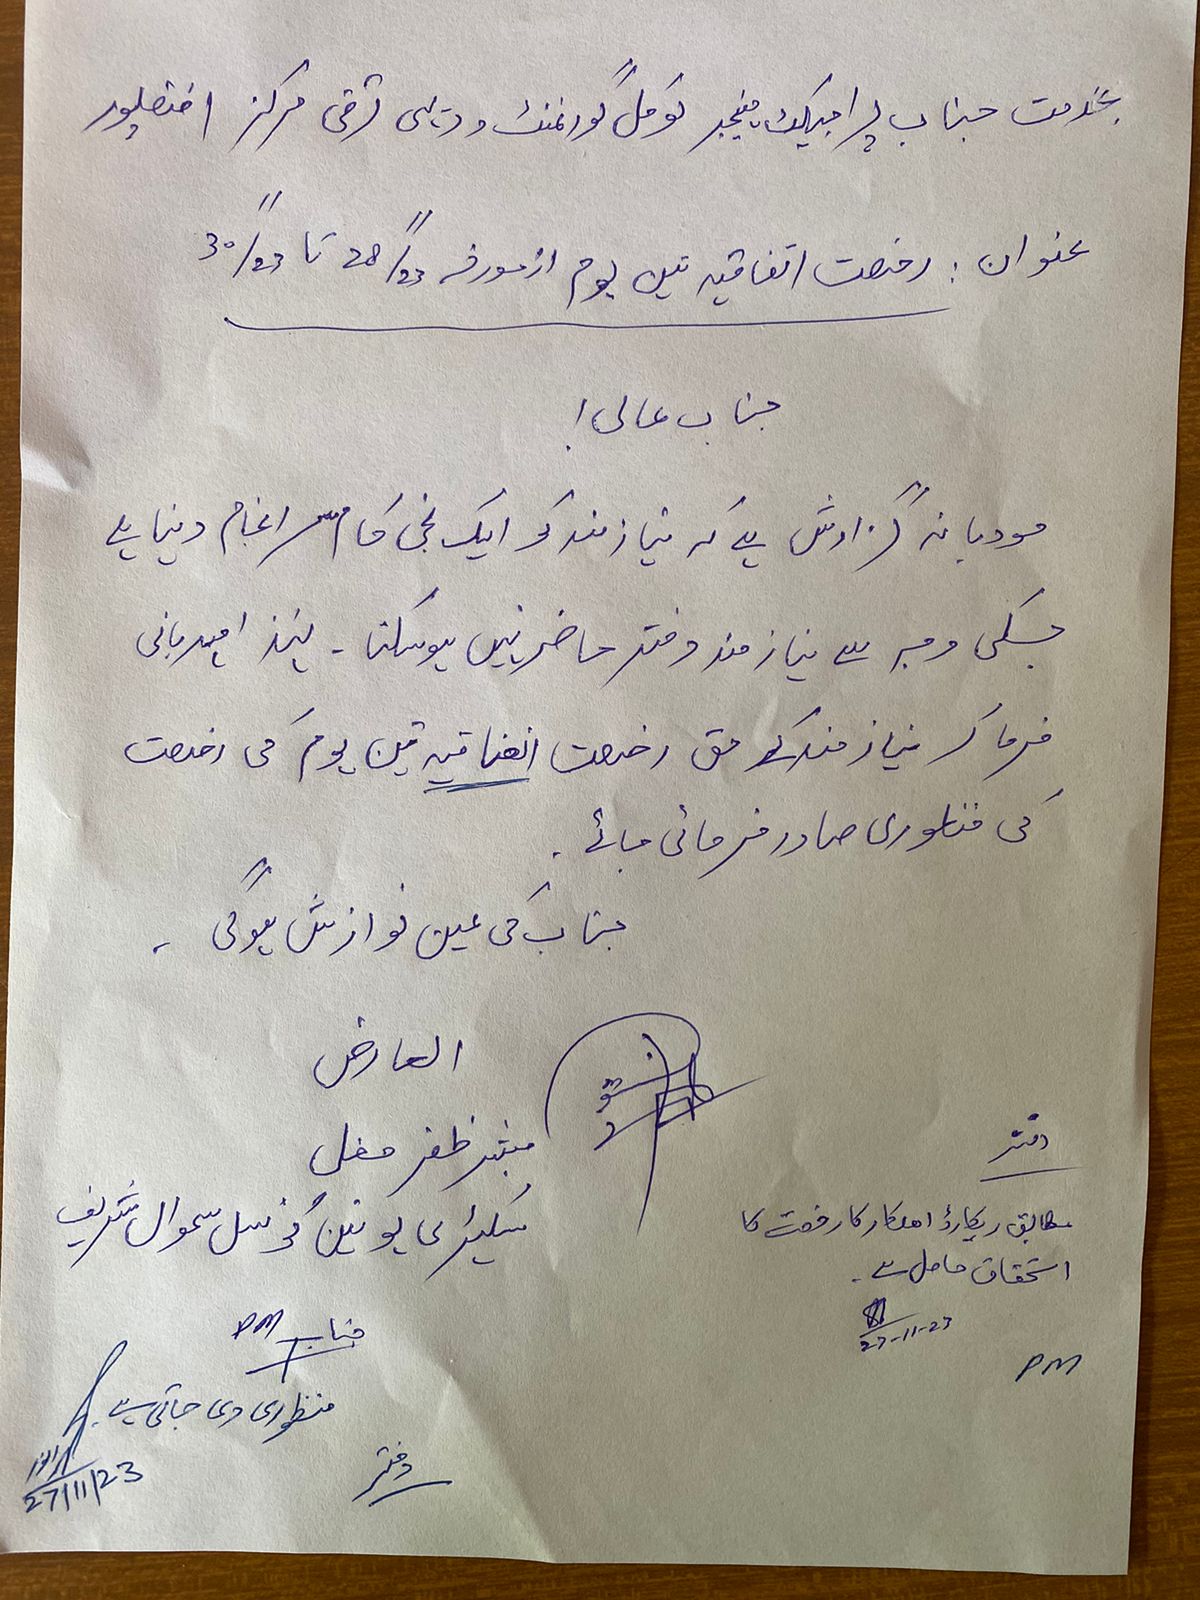 بخدمت جناب پراجیکٹ مینیجر لوکل گورنمنٹ و دیہی ترقی مرکز افضلپور
عنوان : رخصت اتفاقیہ تین یوم از مورخہ 28/11/23 تا 30/11/23
جناب عالی!
مودبانہ گزارش ہے کہ نیازمند کو ایک نجی کام سرانجام دینا ہے
جسکی وجہ سے نیازمند دفتر حاضر نہیں ہوسکتا ۔ لہذا مہربانی
فرما کر نیازمند کے حق رخصت اتفاقیہ تین یوم کی رخصت
کی منظوری صادر فرمائی جائے ۔
جناب کی عین نوازش ہوگی ۔
العارض
ظفر مغل
سیکرٹری یونین کونسل سموال شریف
دفتر
مطابق ریکارڈ اہلکار کار خصت کا
استحقاق حاصل ہے ۔
27-11-23
PM
جناب PM
منظوری دی جاتی ہے ۔
27/11/23
دفتر